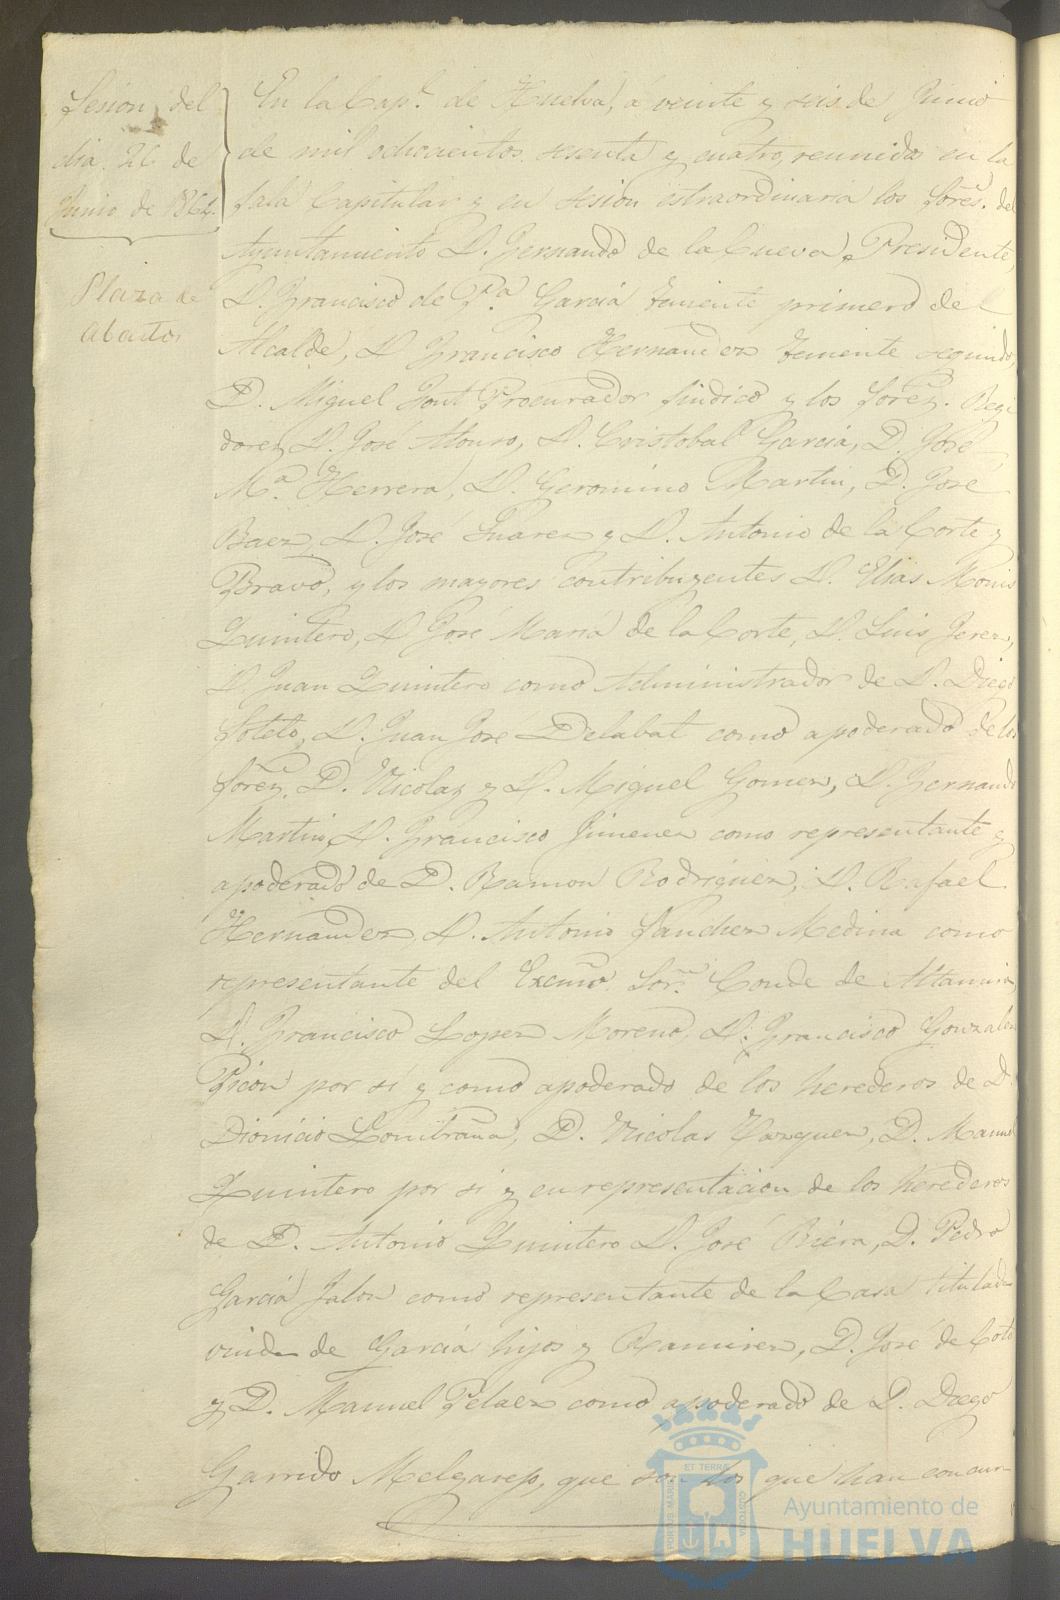 Sesion del
dia 26 de
Junio de 1864.
Plaza de
Abastos
En la Cap.l de Huelva, á veinte y seis de Junio
de mil ochocientos sesenta y cuatro, reunidos en la
Sala Capitular y en sesion estraordinaria los Sores. del
Ayuntamiento D. Fernando de la Cueva, Presidente,
D. Francisco de P.a Garcia teniente primero del
Alcalde, D. Francisco Hernandez teniente segundo,
D. Miguel Font Procurador Sindico y los Sores. Regi
dores D. José Alonso, D. Cristobal Garcia, D. José
M.a Herrera, D. Geronimo Martin, D. José
Baez, D. José Suarez y D. Antonio de la Corte y
Bravo, y los mayores contribuyentes D. Elias Monis
Quintero, D. José Maria de la Corte, D. Luis Jerez,
D. Juan Quintero como Administrador de D. Diego
Soteto, D. Juan José Delabat como apoderado de los
Sores. D. Nicolas y D. Miguel Gomez, D. Fernando
Martin, D. Francisco Jimenez como representante y
apoderado de D. Ramon Rodriguez, D. Rafael
Hernandez, D. Antonio Sanchez Medina como
representante del Excmo. Sor. Conde de Altamira,
D. Francisco Lopez Moreno, D. Francisco Gonzalez
Picon por sí y como apoderado de los herederos de D.
Dionicio Lombraña, D. Nicolas Vazquez, D. Manuel
Quintero por si y en representacion de los herederos
de D. Antonio Quintero D. José Riera, D. Pedro
Garcia Jalon como representante de la Casa titulada
viuda de Garcia hijos y Ramirez, D. José de Coto
y D. Manuel Pelaez como apoderado de D. Diego
Garrido Melgarejo, que son los que han concur-
ET TERRÆ
PORTUS MARIS
CUSTODIA
Ayuntamiento de
HUELVA